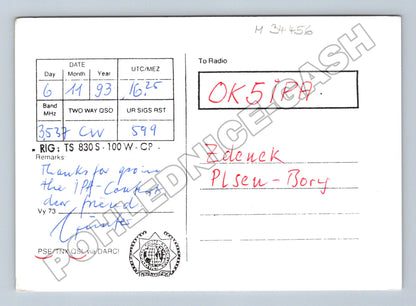 M 34456
DATE
UTC/MEZ
Day Month Year
6 11 93 16.25
Band MHz
TWO WAY QSO
UR SIGS RST
3537 CW 599
RIG: TS 830 S - 100 W - GP
Remarks:
Thanks for
the IPA-Contest
dear friend
Vy 73
Günter
PSE/TNX QSL via DARC!
To Radio
OK5IPA
Zdenek
Plsen-Bory
POHLEDNICE-CASH